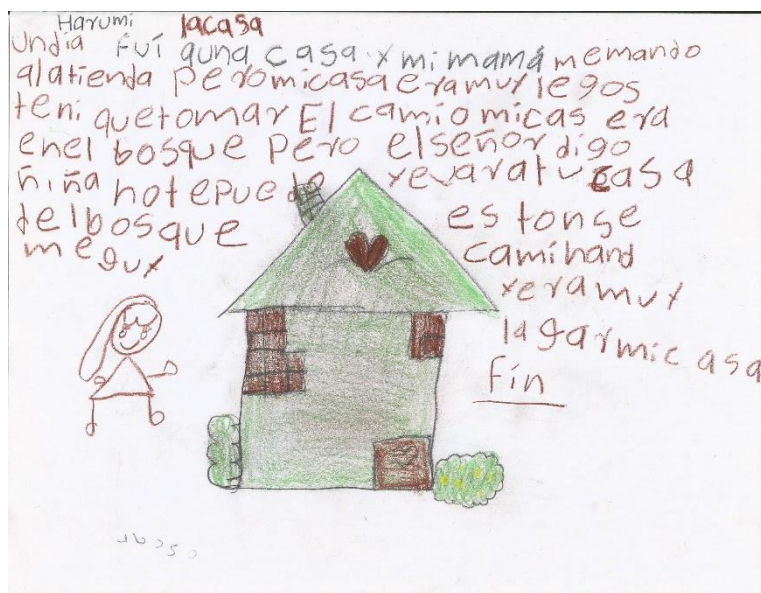 Harumi lacasa
Undia Fuí auna casa x mi mamá memando
alatienda peromicasaeramuy legos
teni quetomar El camiomicas era
enel bosque Pero elseñor digo
niña notepuedo yevaratucasa
delbosque estonse
meguy caminand
yeramuy
lagarmicasa
Fin
oscar